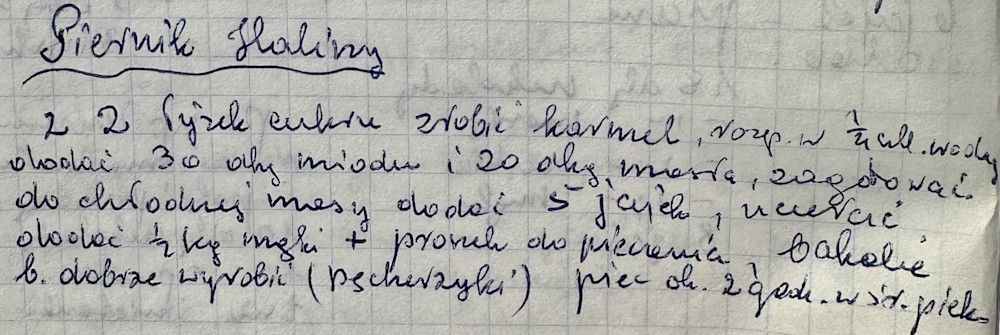 Piernik Haliny
z 2 łyżek cukru zrobić karmel, rozp. w 1/4 szk. wody
dodać 30 dkg miodu i 20 dkg masła, zagotować.
do chłodnej masy dodać 5 jajek, ucierać
dodać 1/2 kg mąki + proszek do pieczenia, bakalie
b. dobrze wyrobić (pęcherzyki) piec ok. 2 godz. w śr. piek.